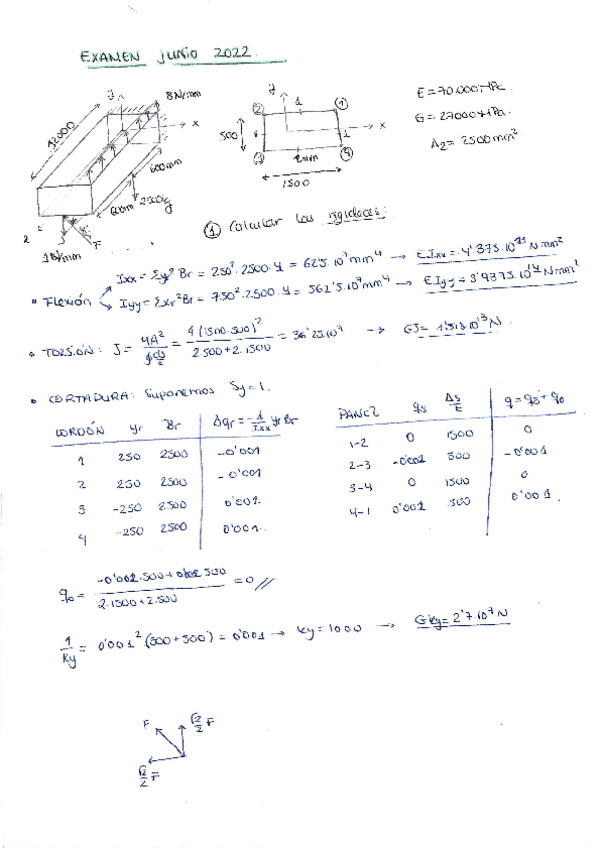 EXAMEN JUNIO 2022.
y
8N/mm
12000
x
600mm
600mm
2500kg
2
F
y
② 1 ①
500
x
1
③ 2mm ④
1500
E = 70.000MPa.
G = 27000MPa.
A2 = 2500mm²
① Calcular las rigideces:
• Flexión
Ixx = Σy² Br = 250².2500.4 = 625.10⁶mm⁴ → E.Ixx = 4'375.10¹³ Nmm²
Iyy = Σxr²Br = 750².2500.4 = 5625.10⁶mm⁴ → E.Iyy = 3'9375.10¹⁴ Nmm²
• TORSIÓN: J = 4A² / ∮ds/t = 4(1500.500)² / 2.500+2.1500 → GJ =
• CORTADURA: Suponemos Sy=1.
CORDÓN yr Br Δqr = -1/Ixx yr Br
1 250 2500 -0'001
2 250 2500 -0'001
3 -250 2500 0'001
4 -250 2500 0'001
PANEL qs Δs/t q = qs + q0
1-2 0 1500 0
2-3 -0'001 500 -0'001
3-4 0 1500 0
4-1 0'001 500 0'001
q0 = -0'001.500+0'001.500 / 2.1500+2.500 = 0 //
1/Ky = 0'001² (500+500) = 0'001 → Ky = 1000 → GKy = 2'7.10⁷ N
F √2/2 F
√2/2 F